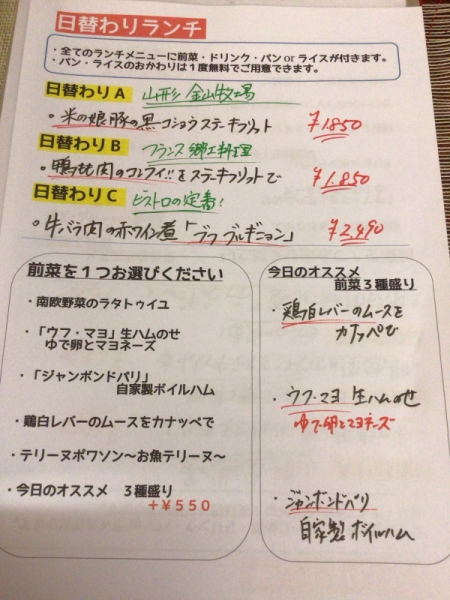 日替わりランチ
・全てのランチメニューに前菜・ドリンク・パン or ライスが付きます。
・パン・ライスのおかわりは１度無料でご用意できます。
日替わりA 山形 金山牧場
・米の娘豚の黒コショウステーキフリット ¥1,850
日替わりB フランス郷土料理
・鴨もも肉のコンフィ!!をステーキフリットで ¥1,850
日替わりC ビストロの定番!
・牛バラ肉の赤ワイン煮「ブフ ブルギニョン」 ¥2,490
前菜を１つお選びください
・南欧野菜のラタトゥイユ
・「ウフ・マヨ」生ハムのせ
ゆで卵とマヨネーズ
・「ジャンボンドパリ」
自家製ボイルハム
・鶏白レバーのムースをカナッペで
・テリーヌポワソン～お魚テリーヌ～
・今日のオススメ ３種盛り
＋￥５５０
今日のオススメ
前菜３種盛り
・鶏白レバーのムースを
カナッペで
・ウフ・マヨ 生ハムのせ
ゆで卵とマヨネーズ
・ジャンボンドパリ
自家製 ボイルハム